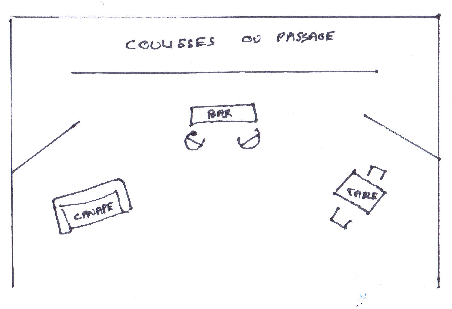 COULISSES OU PASSAGE
BAR
CANAPE
TABLE